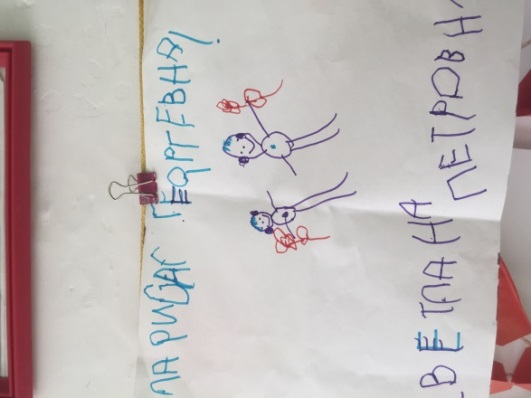 ЛАРИСАГ ГЕОРГЕВНА!
ВЕТЛАНА ПЕТРОВН